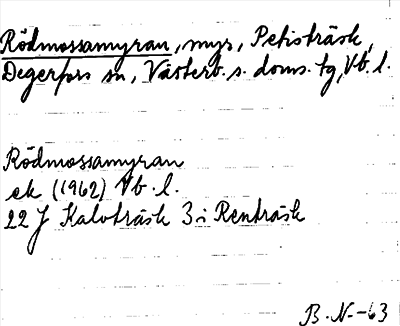 Rödmossamyran, myr, Petisträsk,
Degerfors sn, Västerb. s. doms. tg, Vb. l.
Rödmossamyran
ek (1962) Vb. l.
22 J Kalvträsk 3 i Renträsk
B. N. -63